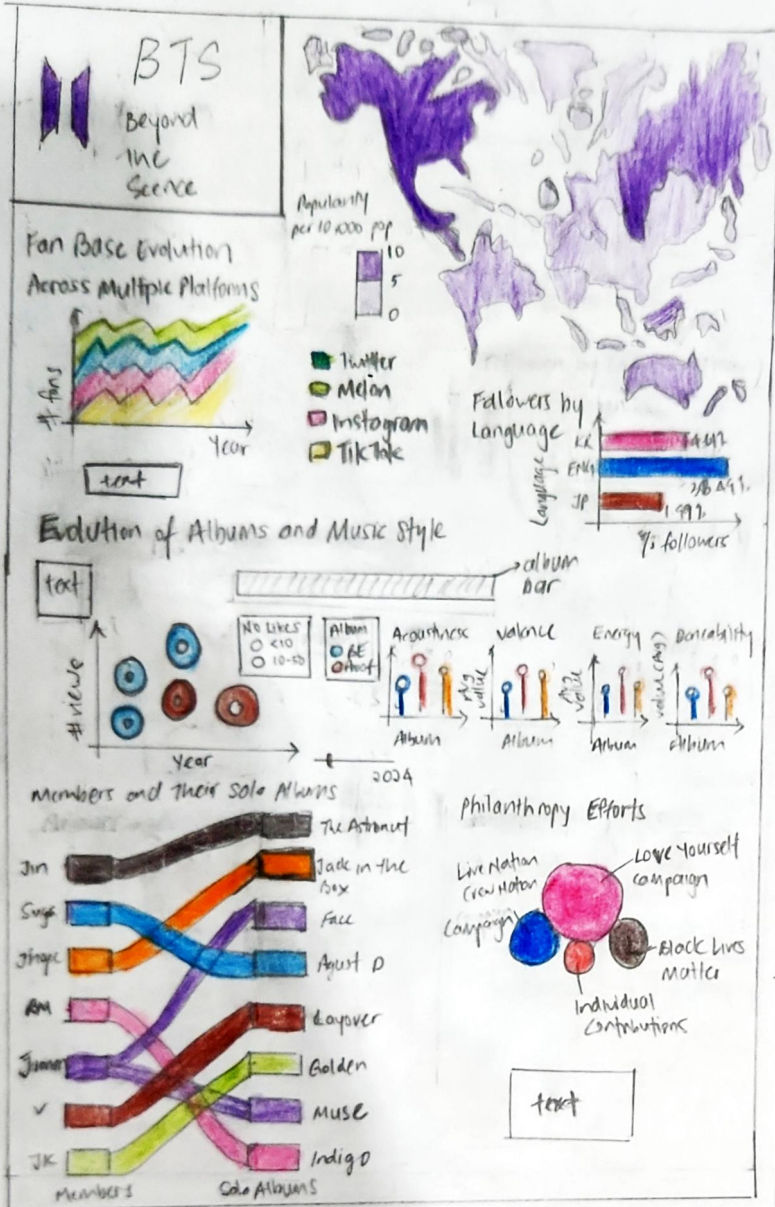 BTS
Beyond
The
Scence
Popularity
per 10,000 pop
10
5
0
Fan Base Evolution
Across Multiple Platforms
# fans
Year
text
Twitter
Melon
Instagram
TikTok
Followers by
Language
Language
KR
ENG
JP
% followers
Evolution of Albums and Music Style
text
album
bar
# views
Year
No Likes
<10
10-50
Album
BE
Proof
2024
Acoustness
Album
Valence
Avg
value
Album
Energy
Avg
value
Album
Danceability
value (Avg)
Album
Members and Their Solo Albums
Jin
Suga
Jhope
RM
Jimin
V
JK
Members
The Astronaut
Jack in the
Box
Face
Agust D
Layover
Golden
Muse
Indigo
Solo Albums
Philanthropy Efforts
Live Nation
Crew Nation
Campaign
Love Yourself
campaign
Black Lives
Matter
Individual
Contributions
text